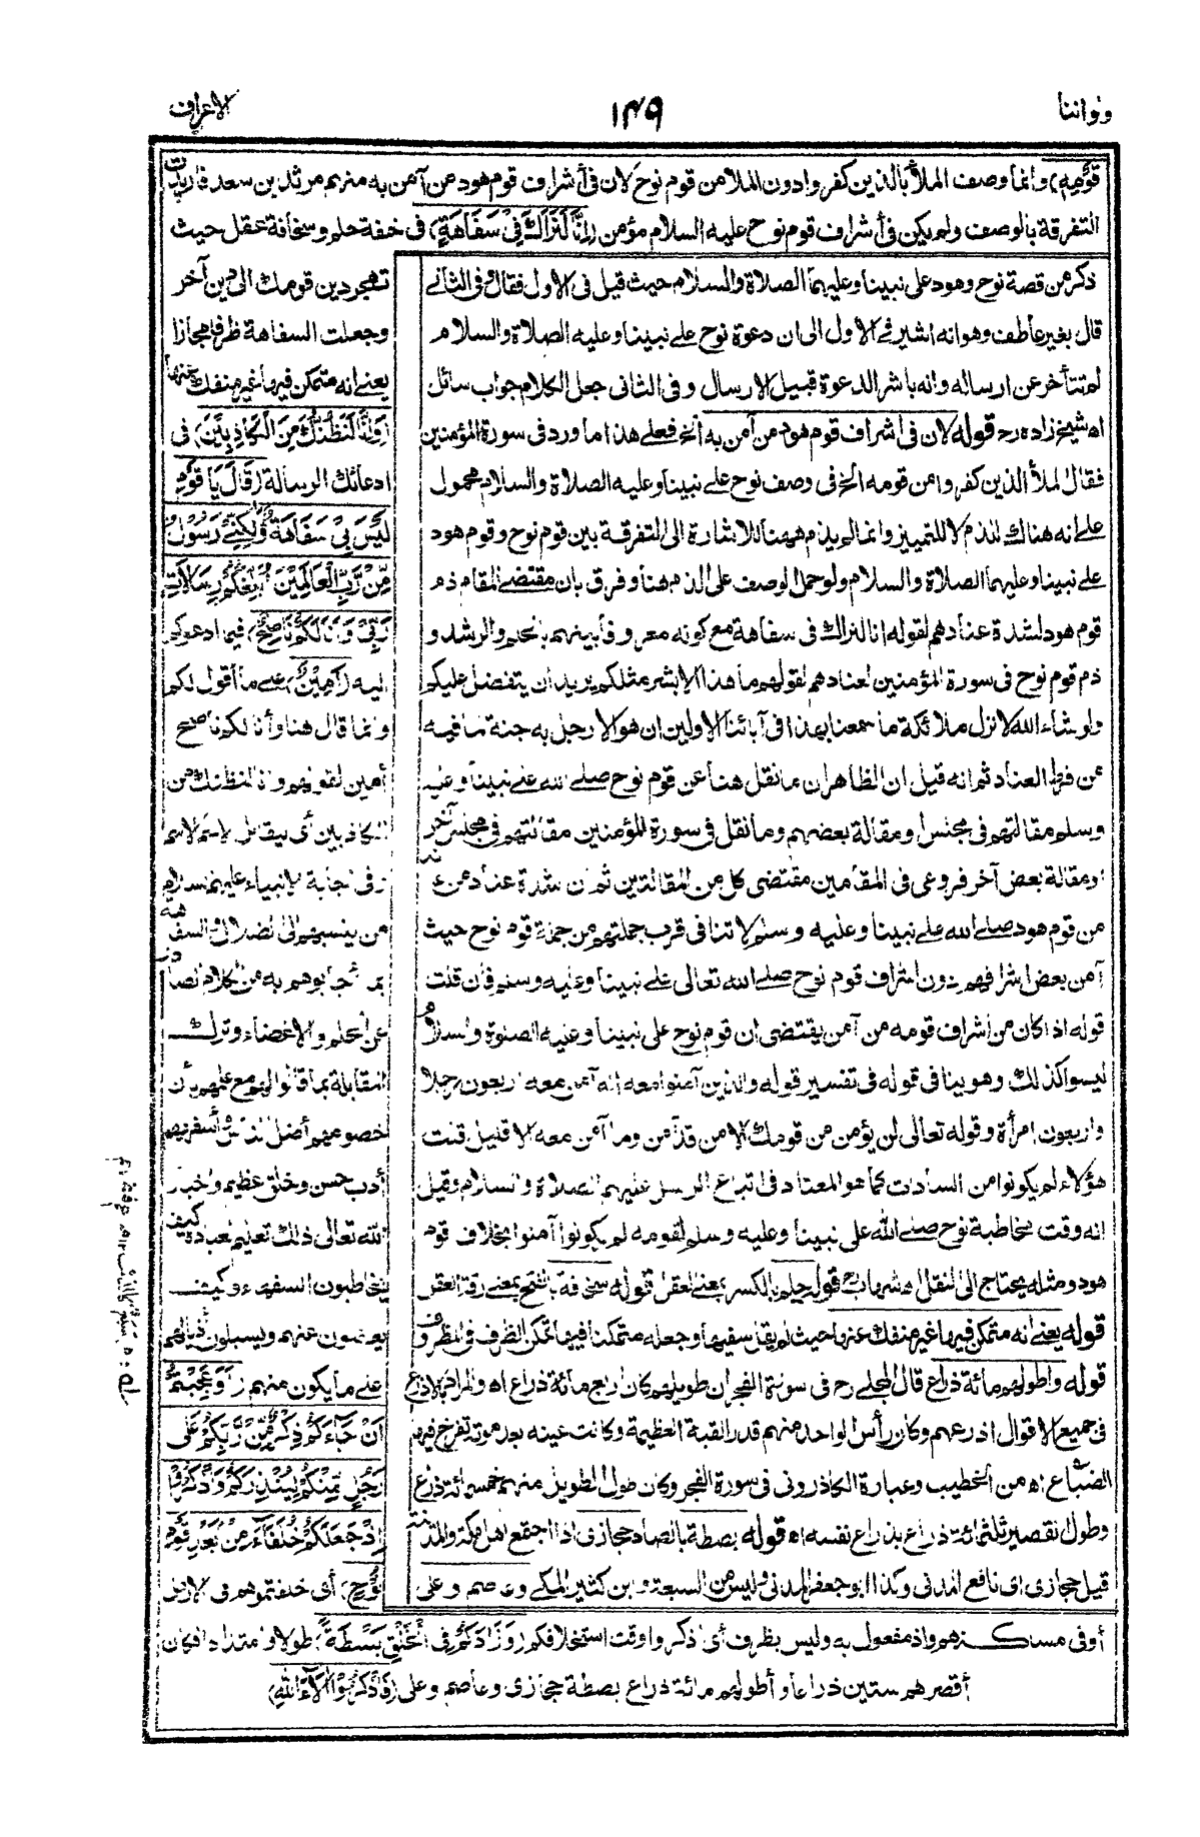 ولواننا
١٣٩
الاعراف
قَوْمِهِ) وانما وصف الملأ بالذين كفروا دون الملا من قوم نوح لان فى أشراف قوم هود من آمن به منهم مرثد بن سعد فاريدت
التفرقة بالوصف ولم يكن فى أشراف قوم نوح عليه السلام مؤمن (اِنَّا لَنَرَاكَ فِىْ سَفَاهَةٍ) فى خفة حلم وسخافة عقل حيث
تهجر دين قومك الى دين آخر
وجعلت السفاهة ظرفا مجازا
يعنى انه متمكن فيها غير منفك عنها
(وَاِنَّا لَنَظُنُّكَ مِنَ الْكَاذِبِيْنَ) فى
ادعائك الرسالة (قَالَ يَا قَوْمِ
لَيْسَ بِىْ سَفَاهَةٌ وَّلٰكِنِّىْ رَسُوْلٌ
مِّنْ رَّبِّ الْعَالَمِيْنَ اُبَلِّغُكُمْ رِسَالَاتِ
رَبِّىْ وَاَنَا لَكُمْ نَاصِحٌ) فيما ادعوكم
اليه (اَمِيْنٌ) على ما أقول لكم
وانما قال هنا وأنا لكم ناصح
أمين لقولهم وانا لنظنك من
الكاذبين أى ليقابل الاسم الاسم
وفى اجابة الانبياء عليهم السلام
من ينسبهم الى الضلال والسفاهة
بما أجابوهم به من الكلام الصادر
عن الحلم والاغضاء وترك
المقابلة بما قالوا لهم مع علمهم بأن
خصومهم أضل الناس وأسفههم
أدب حسن وخلق عظيم واخبار
الله تعالى ذلك تعليم لعباده كيف
يخاطبون السفهاء وكيف
يغضون عنهم ويسبلون أذيالهم
على ما يكون منهم (اَوَعَجِبْتُمْ
اَنْ جَاءَكُمْ ذِكْرٌ مِّنْ رَّبِّكُمْ عَلٰى
رَجُلٍ مِّنْكُمْ لِيُنْذِرَكُمْ وَاذْكُرُوْا
اِذْ جَعَلَكُمْ خُلَفَاءَ مِنْ بَعْدِ قَوْمِ
نُوْحٍ) أى خلفتموهم فى الارض
أو فى مساكنهم واذ مفعول به وليس بظرف أى اذكروا وقت استخلافكم (وَزَادَكُمْ فِى الْخَلْقِ بَسْطَةً) طولا وامتدادا فكان
أقصرهم ستين ذراعا وأطولهم مائة ذراع بصطة حجازى وعاصم وعلى (فَاذْكُرُوْا اٰلَاءَ اللهِ)
ذكر من قصة نوح وهود على نبينا وعليهما الصلاة والسلام حيث قيل فى الاول فقال وفى الثانى
قال بغير عاطف وهو انه اشير فى الاول الى ان دعوة نوح على نبينا وعليه الصلاة والسلام
لم تتأخر عن ارساله وانه باشر الدعوة قبيل الارسال وفى الثانى جعل الكلام جواب سائل
اه شيخ زاده رح قوله لان فى اشراف قوم هود من آمن به الخ فعلى هذا ما ورد فى سورة المؤمنين
فقال الملأ الذين كفروا من قومه الخ فى وصف نوح على نبينا وعليه الصلاة والسلام محمول
على انه هناك للذم لا للتمييز وانما لم يذم ههنا للاشارة الى التفرقة بين قوم نوح وقوم هود
على نبينا وعليهما الصلاة والسلام ولو حمل الوصف على الذم هنا وفرق بان مقتضى المقام ذم
قوم هود لشدة عنادهم لقوله انا لنراك فى سفاهة مع كونه معروفا بينهم بالحلم والرشد و
ذم قوم نوح فى سورة المؤمنين لعنادهم لقولهم ما هذا الا بشر مثلكم يريد ان يتفضل عليكم
ولو شاء الله لانزل ملائكة ما سمعنا بهذا فى آبائنا الاولين ان هو الا رجل به جنة لما فيه
من فرط العناد ثم انه قيل ان الظاهر ان ما نقل هنا عن قوم نوح صلى الله على نبينا وعليه
وسلم مقالتهم فى مجلس ومقالة بعضهم وما نقل فى سورة المؤمنين مقالتهم فى مجلس آخر
او مقالة بعض آخر فروعى فى المقامين مقتضى كل من المقالتين ثم ان شدة عناد من عاند
من قوم هود صلى الله على نبينا وعليه وسلم لا تنافى قرب جملتهم من جملة قوم نوح حيث
آمن بعض اشرافهم دون اشراف قوم نوح صلى الله تعالى على نبينا وعليه وسلم فان قلت
قوله اذا كان من اشراف قومه من آمن يقتضى ان قوم نوح على نبينا وعليه الصلوة والسلام
ليسوا كذلك وهو ينافى قوله فى تفسير قوله والذين آمنوا معه انه آمن معه اربعون رجلا
واربعون امرأة وقوله تعالى لن يؤمن من قومك الا من قد آمن وما آمن معه الا قليل قلت
هؤلاء لم يكونوا من السادات كما هو المعتاد فى اتباع الرسل عليهم الصلاة والسلام وقيل
انه وقت مخاطبة نوح صلى الله على نبينا وعليه وسلم لقومه لم يكونوا آمنوا بخلاف قوم
هود ومثله يحتاج الى النقل اه شهاب رح قوله حلم بالكسر بمعنى العقل قوله سخافة بالفتح بمعنى رقة العقل
قوله يعنى انه متمكن فيها غير منفك عنها حيث لم يقل سفيها وجعله متمكنا فيها تمكن الظرف فى المظروف
قوله واطولهم مائة ذراع قال المحلى رح فى سورة الفجر ان طويلهم كان اربع مائة ذراع اه والمراد بالاذرع
فى جميع الاقوال اذرعهم وكان رأس الواحد منهم قدر القبة العظيمة وكانت عينه بعد موته تفرخ فيها
الضباع اه من الخطيب وعبارة الكاذرونى فى سورة الفجر وكان طول الطويل منهم خمسمائة ذراع
وطول القصير ثلثمائة ذراع بذراع نفسه اه قوله بصطة بالصاد حجازى اذا اجتمع اهل مكة والمدينة
قيل حجازى اى نافع المدنى وكذا ابو جعفر المدنى وليس من السبعة وابن كثير المكى وعاصم وعلى